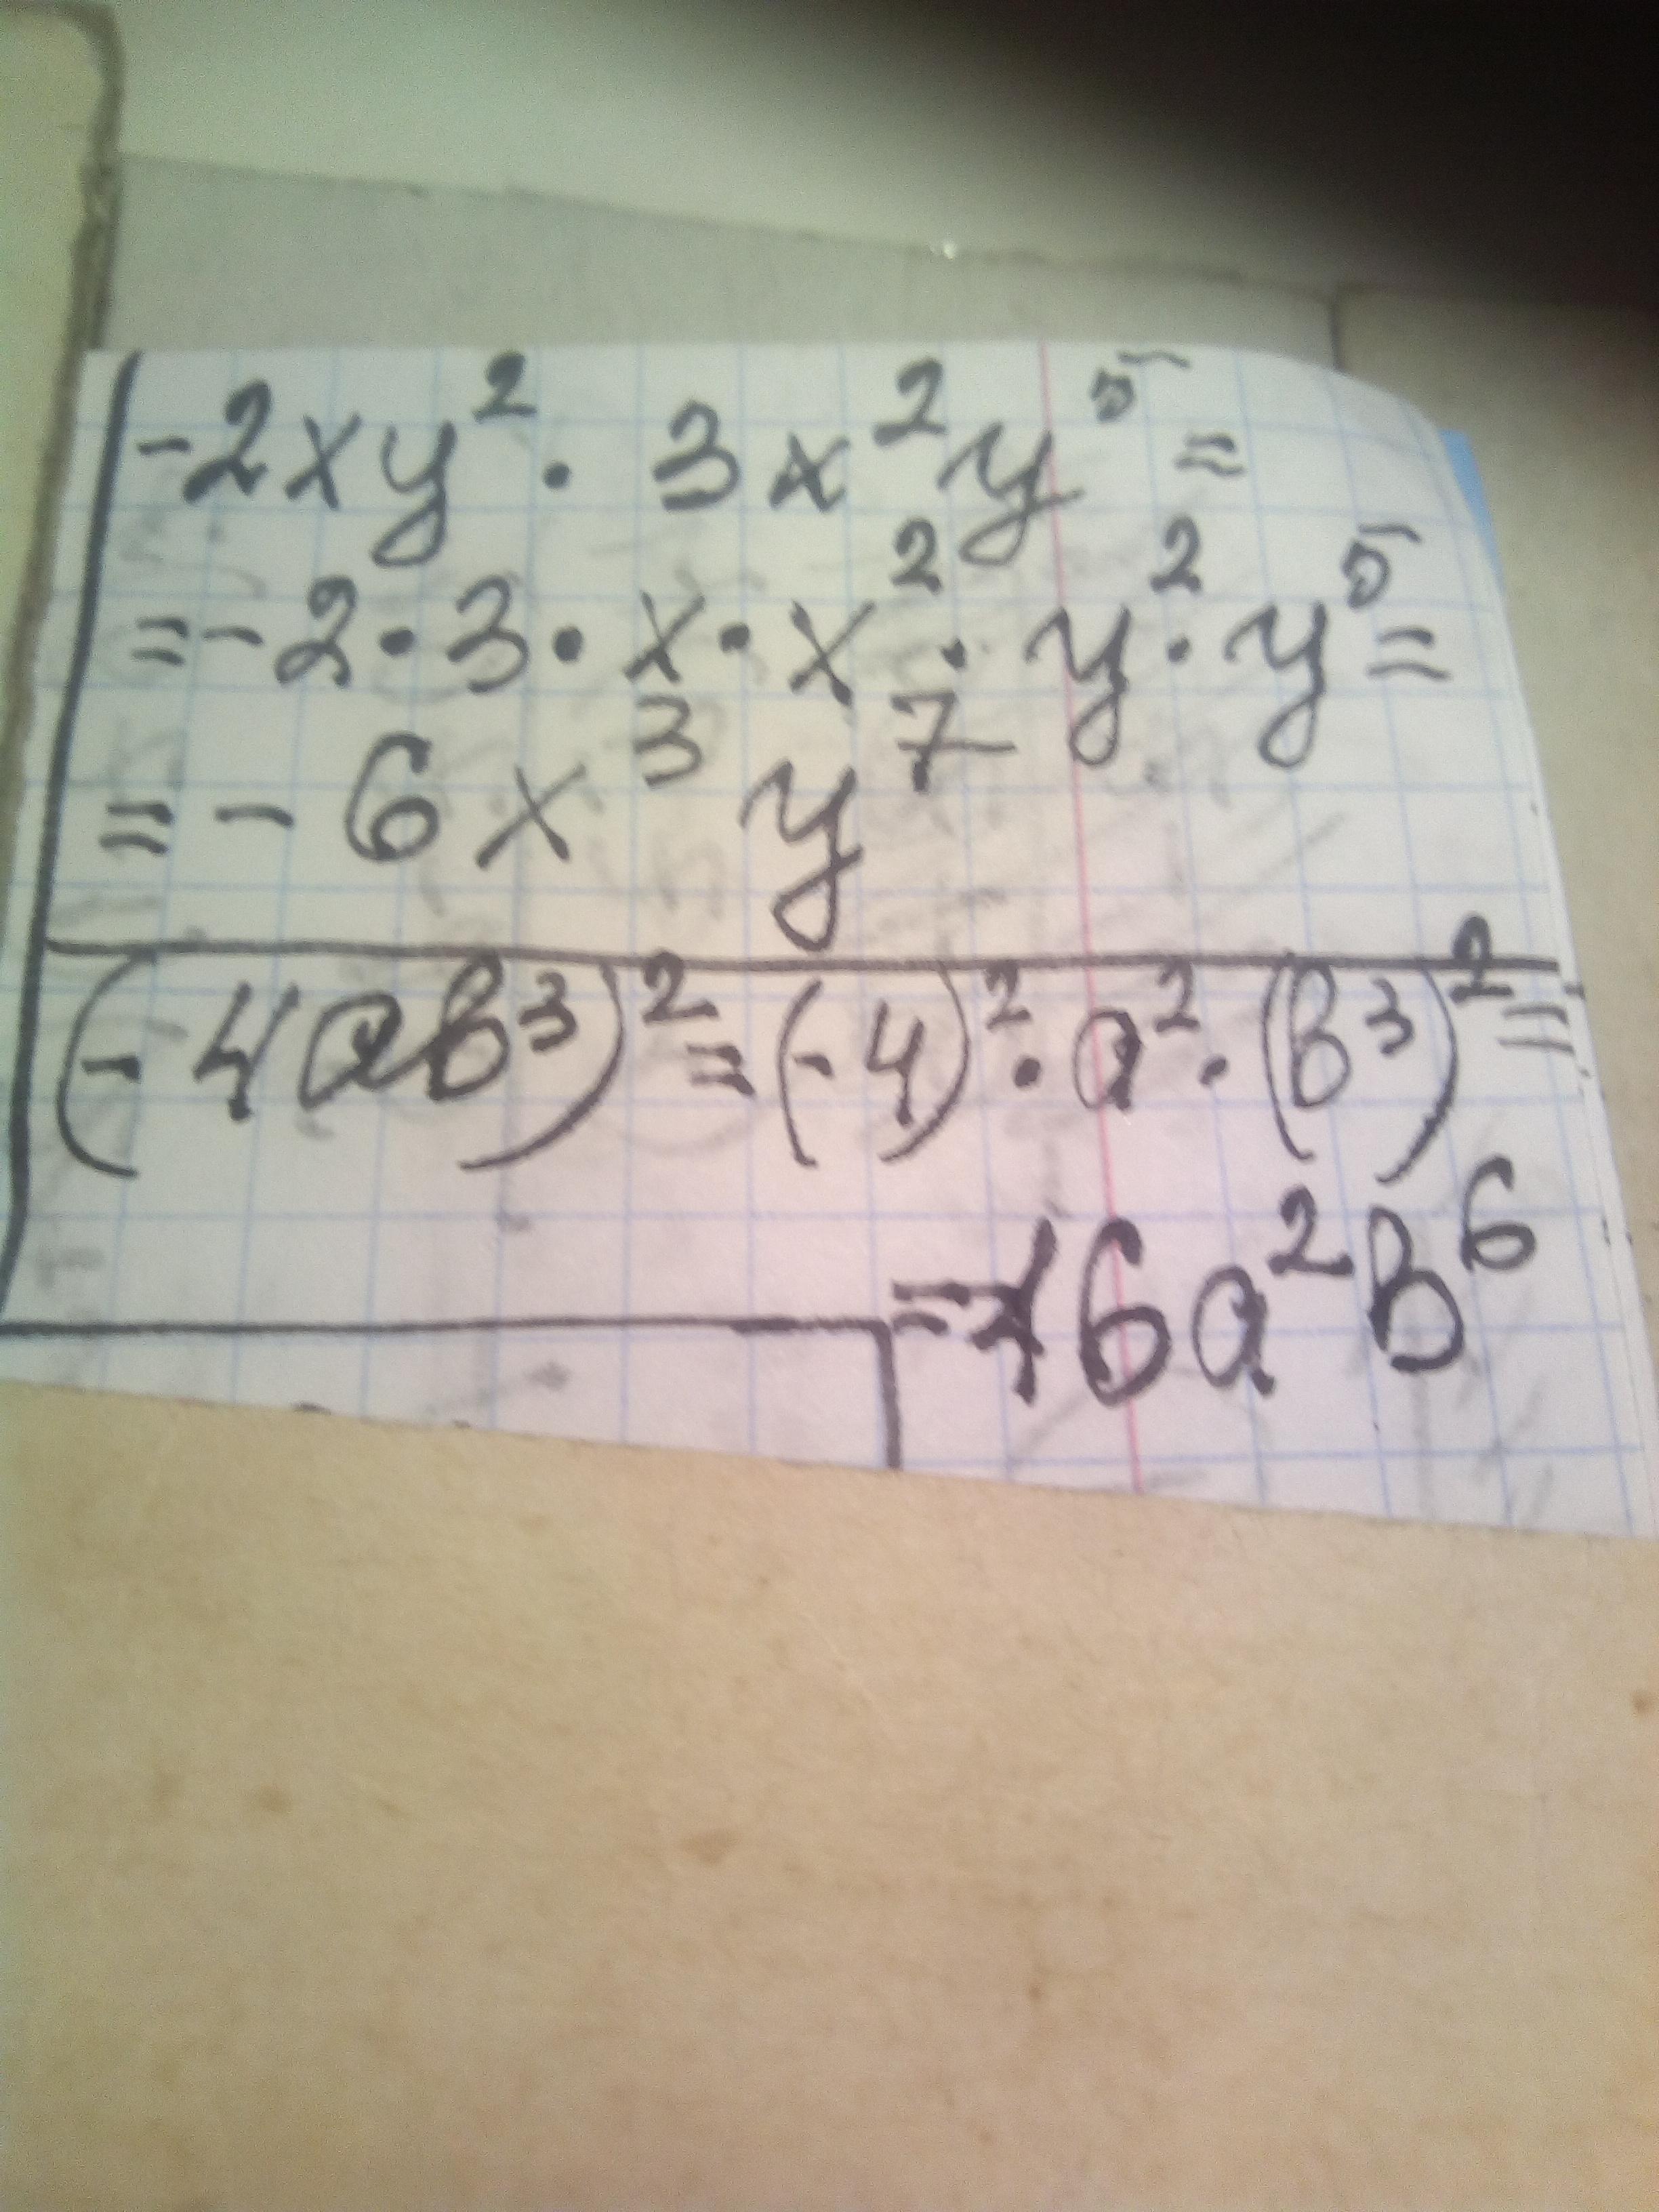 -2xy² · 3x²y⁵ =
= -2 · 3 · x · x² · y² · y⁵ =
= - 6x³y⁷
(-4ab³)² = (-4)² · a² · (b³)² =
= 16a²b⁶